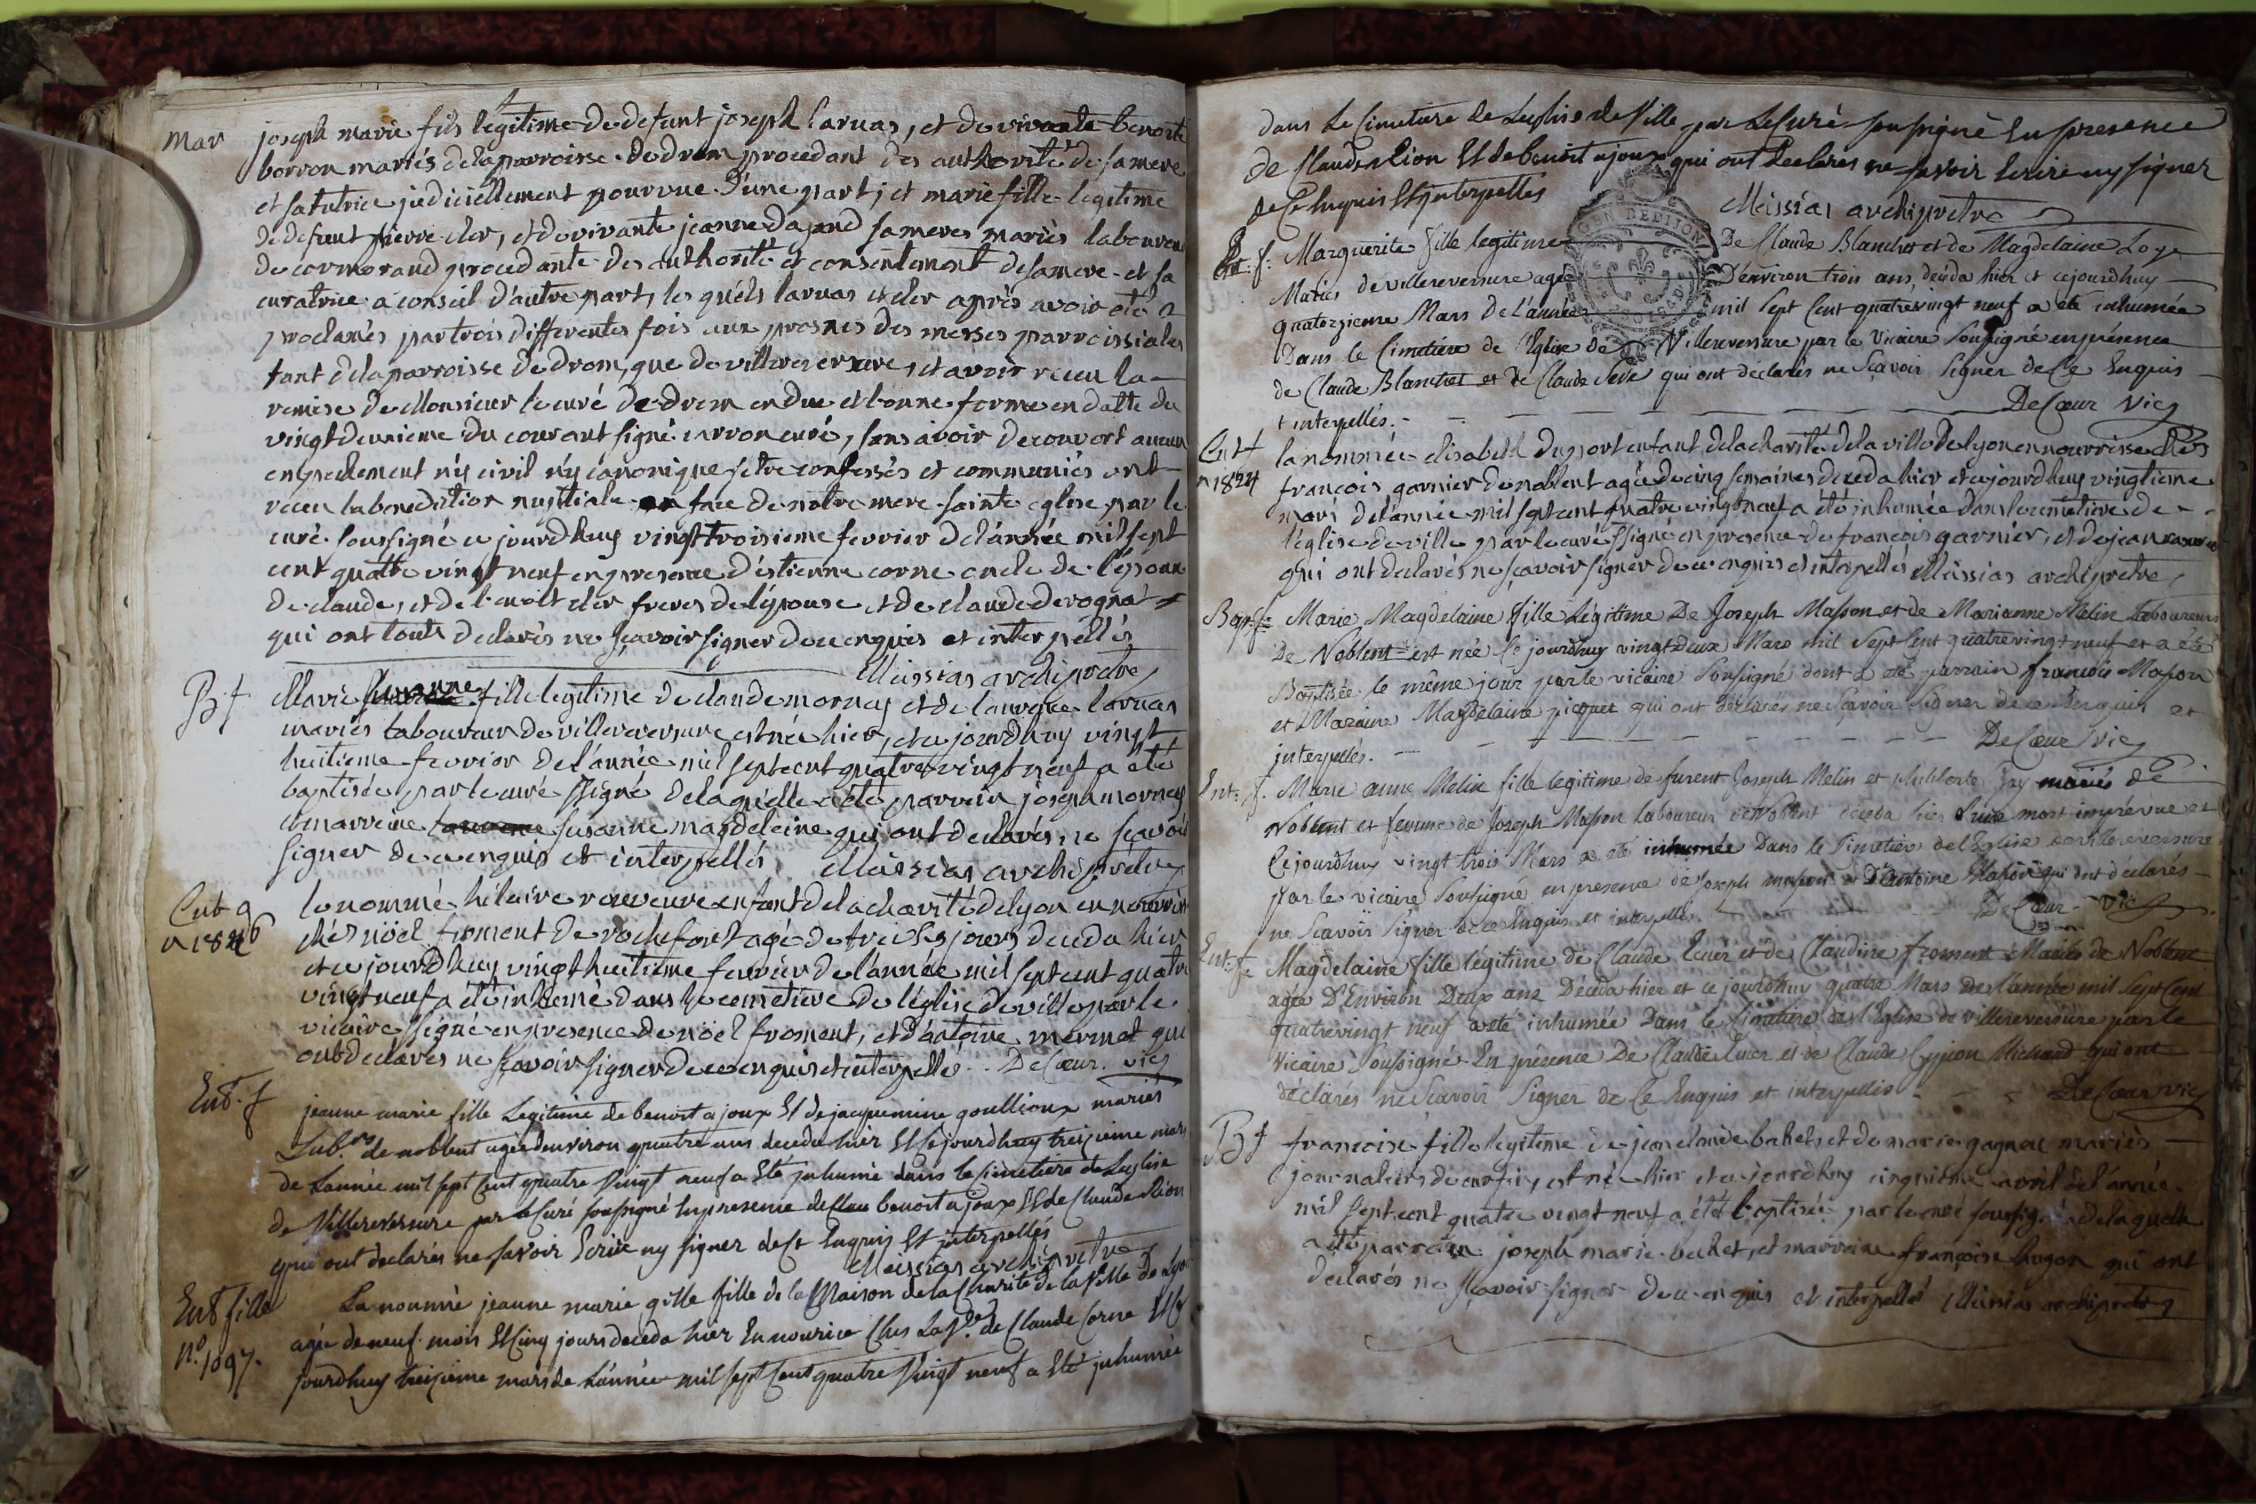 Mar
joseph marie fils legitime de defunt joseph laruas, et de vivante benoite
borron mariés de la parroisse de drom procedant des authorité de sa mere
et sa tutrice judiciellement pourvue d'une part; et marie fille legitime
de defunt pierre cler, et de vivante jeanne dagand sa mere mariés laboureurs
de cormorand procedante des authorité et consentement de sa mere et sa
curatrice a conseil d'autre part, les quels laruas et cler après avoir eté
proclamés par trois differentes fois aux prosnes des messes parroissiales
tant de la parroisse de drom, que de villereversure, et avoir receu la
remise de Monsieur le curé de drom en due et bonne forme en datte du
vingt deuxieme du courant signé curé, sans avoir decouvert aucun
empechement n'y civil n'y canonique s'etre confessés et communiés ont
receu la benediction nuptiale en face de notre mere sainte eglise par le
curé soussigné ce jourd'huy vingt troisieme fevrier de l'année mil sept
cent quatte vingt neuf en presence d'estienne corne oncle de l'epoux
de claude, et de benoît cler freres de l'épouse et de claude derognat
qui ont touts declarés ne sçavoir signer de ce enquis et interpellés
Meissias archiprêtre
B. f
Marie susanne fille legitime de claude mornay et de laurence laruas
mariés laboureur de villereversure est née hier, et ce jourd'huy vingt
huitieme fevrier de l'année mil sept cent quatre vingt neuf a été
baptisée par le curé ssigné de la quelle a été parrain joseph mornay
et marreine susanne magdeleine qui ont declarés ne sçavoir
signer de ce enquis et interpellés Meissias archiprêtre
Ent g
n 1846
le nommé hilaire enfant de la charité de lyon en nourrice
chés nöel froment de rochefort agé de treise jours deceda hier
et ce jourd'huy vingt huitieme fevrier de l'année mil sept cent quatre
vingt neuf a été inhumé dans le cemetiere de l'église de ville par le
vicaire ssigné en presence de nöel froment, et d'antoine mermet qui
ont declarés ne sçavoir signer de ce enquis et interpellés. DeCœur. vic
Ent. f
jeanne marie fille Legitime de benoit ajoux Et de jacquemine goullioux mariés
Lab.rs de noblent agée denviron quatre ans deceda hier Et Ce jourdhuy treizieme mars
de Lannée mil sept Cent quatre Vingt neuf a Eté inhumé dans le Cimetiere de Leglise
de Villereversure par le Curé soussigné En presence de benoit ajoux Et de Claude Rion
qui ont declarés ne savoir Ecrire ny signer de Ce Enquis Et interpellés
Meissias archiprêtre
Ent fille
N.o 1097.
La nommé jeanne marie gille fille de la Maison de la Charité de la Ville de Lyon
agée de neuf mois Et Cinq jours deceda hier En nourice Chés La V.e de Claude Corne Et Ce
jourdhuy treizieme mars de Lannée mil sept Cent quatre Vingt neuf a Eté inhumée
dans Le Cimetiere de Leglise de Ville par Le Curé soussigné En presence
de Claude Rion Et de benoit ajoux qui ont declarés ne savoir Ecrire ny signer
de Ce Enquis Et interpellés
Meissias archiprêtre
Ent. f.
Marguerite fille legitime De Claude Blanchet et de Magdelaine Loye
Mariés de villereversure agée D'environ trois ans, deceda hier et cejourdhuy
quatorzieme Mars De L'année mil Sept Cent quatrevingt neuf a été inhumée
Dans le Cimetiere de l'Eglise de Villereversure par le Vicaire Soussigné en présence
de Claude Blanchet et de Claude Seve qui ont déclarés ne Sçavoir Signer de Ce Enquis
et interpellés. DeCœur Vic
Ent f
n 1824
la nommée elisabeth duport enfant de la charité de la ville de lyon en nourrisse chés
francois garnier de noblent agée de cinq semaines deceda hier et ce jourd'huy vingtieme
mars de l'année mil sept cent quatre vingt neuf a été inhumée dans le cemetiere de
l'église de ville par le curé ssigné en presence de francois garnier, et de jean
qui ont declarés ne sçavoir signer de ce enquis et interpellés Meissias archiprêtre
Bap. f.
Marie Magdelaine fille Légitime De Joseph Masson et de Marianne Melin Laboureurs
De Noblent est née Ce jourdhuy vingt Deux Mars mil Sept Cent quatrevingt neuf et a été
Baptisée le même jour par le vicaire Soussigné dont a été parrain francois Masson
et Maraine Magdelaine picquet qui ont déclarés ne Sçavoir Signer de ce Enquis et
interpellés. DeCœur Vic
Ent. f.
Marie anne Melin fille legitime de furent Joseph Melin et mariés de
Noblent et femme de Joseph Masson laboureur de Noblent deceda hier D'une mort imprevue et
Cejourdhuy vingt trois Mars a été inhumée Dans le Cimetiere de l'Eglise de villereversure
par le vicaire Soussigné en presence de Joseph masson et D'antoine qui ont déclarés
ne Scavoir Signer de ce Enquis et interpellés. DeCœur Vic
Ent. f.
Magdelaine fille légitime De Claude Ecuer et de Claudine froment Mariés de Noblent
agée D'Environ Deux ans Deceda hier et ce jourdhuy quatre Mars De l'année mil Sept Cent
quatrevingt neuf a été inhumée Dans le Cimetiere de l'Eglise de villereversure par le
Vicaire Soussigné En présence De Claude Ecuer et de Claude Cyprien Michaud qui ont
déclarés ne Scavoir Signer de Ce Enquis et interpellés. DeCœur vic
B f
francoise fille legitime de jean claude bahet et de marie gagneux mariés
journaliers de est né hier et ce jourd'huy cinquieme avril de l'année
mil sept cent quatre vingt neuf a été baptisée par le curé soussigné de la quelle
a été parrain joseph marie bahet, et marreine francoise hugon qui ont
declarés ne sçavoir signer de ce enquis et interpellés Meissias archiprêtre